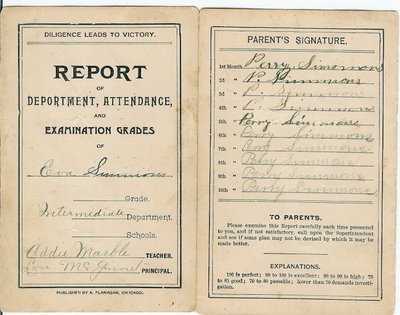 DILIGENCE LEADS TO VICTORY.
REPORT
OF
DEPORTMENT, ATTENDANCE,
AND
EXAMINATION GRADES
OF
Eva Simmons
Grade.
Intermediate Department.
Schools.
Addie Marble TEACHER.
PRINCIPAL.
PUBLISHED BY A. FLANAGAN, CHICAGO.
PARENT'S SIGNATURE.
1st Month Perry Simmons
2d " P. Simmons
3d " P. Simmons
4th " P. Simmons
5th " Perry Simmons
6th " Perry Simmons
7th " Simmons
8th " Perry Simmons
9th " Perry Simmons
10th " Perry Simmons
TO PARENTS.
Please examine this Report carefully each time presented
to you, and if not satisfactory, call upon the Superintendent
and see if some plan may not be devised by which it may be
made better.
EXPLANATIONS.
100 is perfect; 90 to 100 is excellent; 80 to 90 is high; 75
to 85 good; 70 to 80 passable; lower than 70 demands investi-
gation.